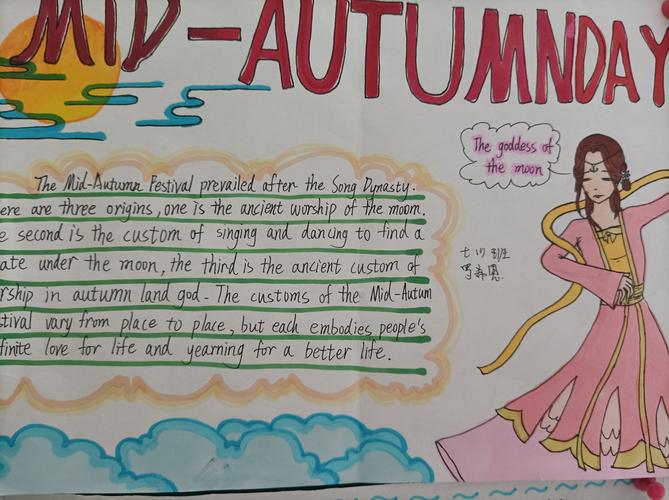 MID-AUTUMN DAY
The goddess of
the moon
The Mid-Autumn Festival prevailed after the Song Dynasty.
ere are three origins, one is the ancient worship of the moon.
e second is the custom of singing and dancing to find a
ate under the moon, the third is the ancient custom of
rship in autumn land god. The customs of the Mid-Autum
tival vary from place to place, but each embodies people's
finite love for life and yearning for a better life.